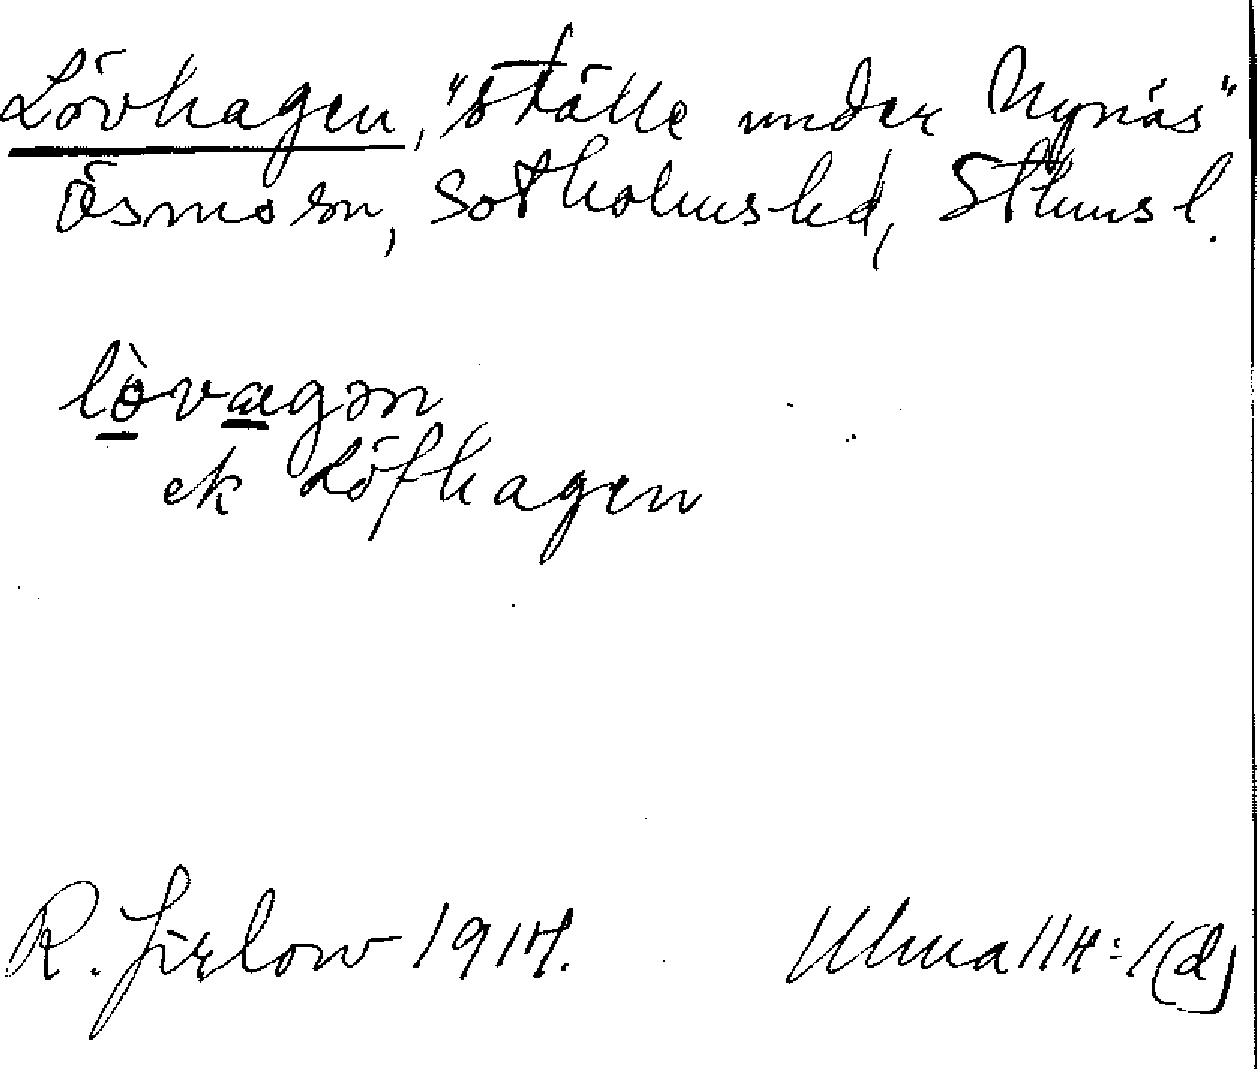 Lövhagen, "ställe under Nynäs"
Ösmo sn, Sotholms hd, Sthms l.
lò̱va̱gən
ek Löfhagen
R. Jirlow 1914. Ulma 114:1(d)